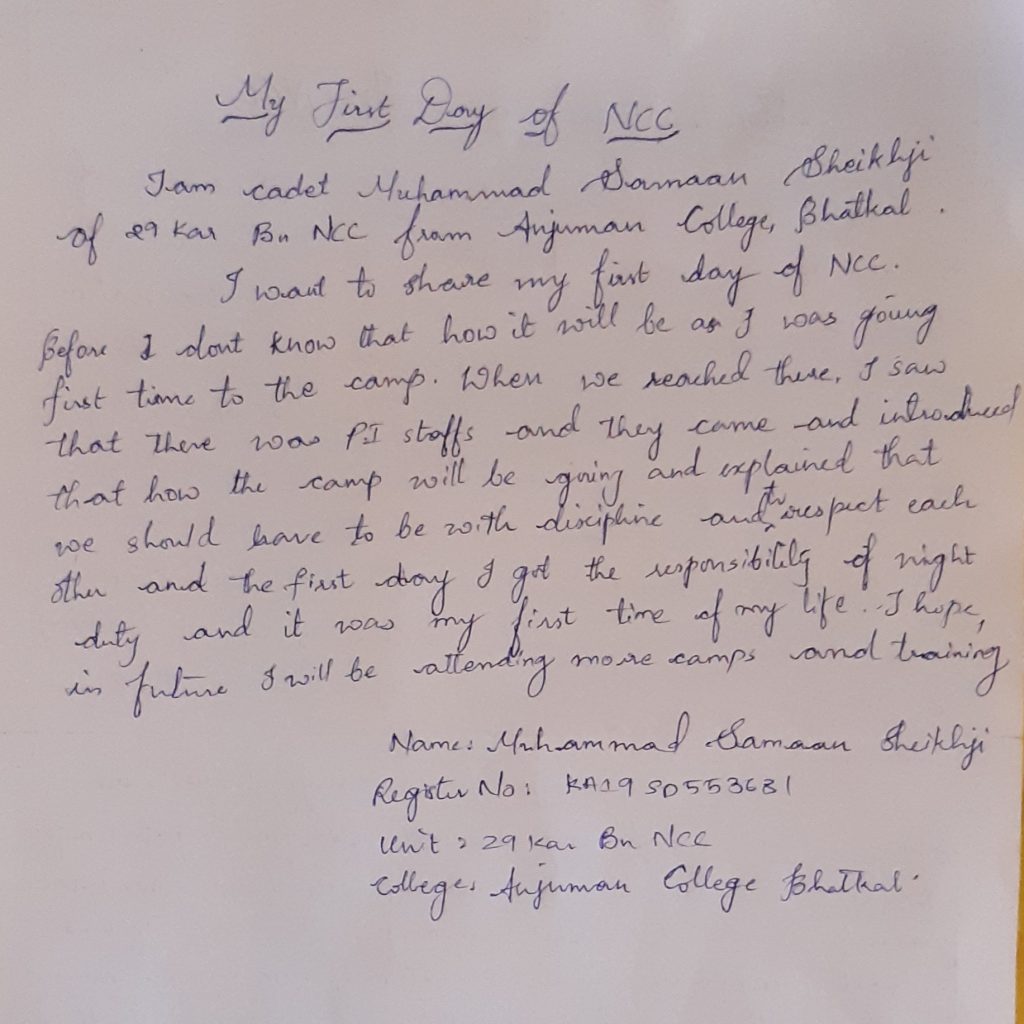 My First Day of NCC
I am cadet Muhammad Samaan Sheikhji
of 29 Kar Bn NCC from Anjuman College, Bhatkal.
I want to share my first day of NCC.
Before I dont know that how it will be as I was going
first time to the camp. When we reached there, I saw
that there was P.I staffs and they came and introduced
that how the camp will be going and explained that
we should have to be with discipline and to respect each
other and the first day I got the responsibility of night
duty and it was my first time of my life. I hope,
in future I will be attending more camps and training
Name: Muhammad Samaan Sheikhji
Register No: KA19SD553631
Unit: 29 Kar Bn NCC
College: Anjuman College Bhatkal.